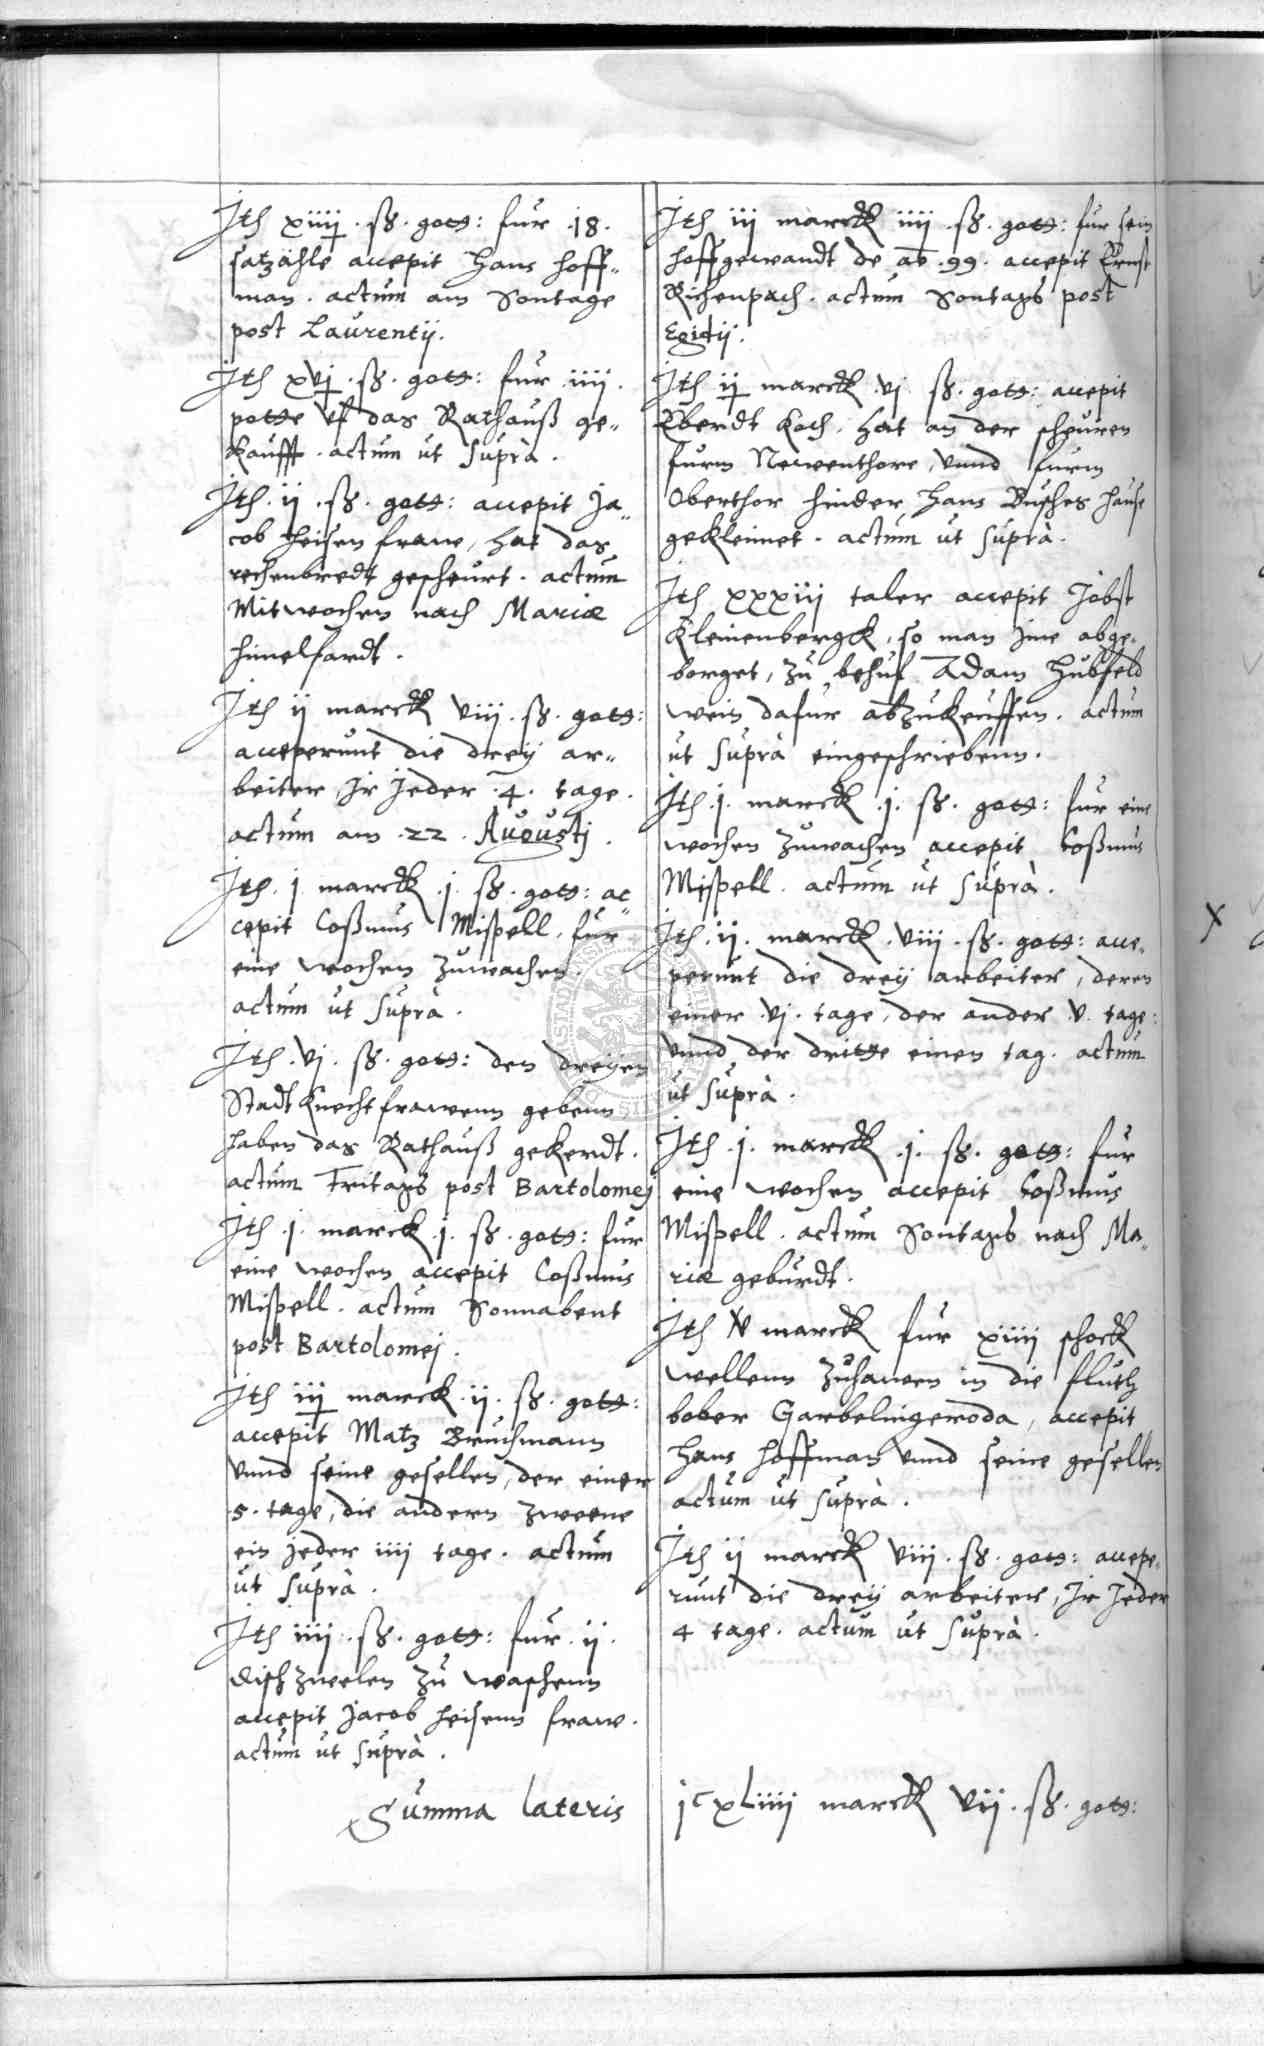 Ith xiiij . ß . gotts: fur .18.
satzähle accepit Hans Hoff„
man . actum am Sontage
post Laurentij.
Ith xvj . ß . gotts: fur .iiij.
potte uf das Rathauß ge„
kaufft . actum ut suprà .
Ith . ij . ß . gotts: accepit Ja„
cob Heisen frawe, hat das
rechenbredt gescheurt . actum
Mitwochen nach Mariæ
himelfardt .
Ith ij marck viij . ß . gotts:
acceperunt die dreij ar„
beiter, Jr Jeder .4. tage .
actum am .22. Augustj .
Ith . j marck .j. ß . gotts: ac„
cepit Coßmus Mispell, fur
eine wochen zuwachen .
actum ut suprà .
Ith . vj . ß . gotts: den dreijen
Stadtknecht frawenn gebenn
haben das Rathauß gekerdt .
actum Fritags post Bartolomej
Ith .j. marck .j. ß . gotts: fur
eine wochen accepit Coßmus
Mispell . actum Sonnabent
post Bartolomej .
Ith iij marck .ij. ß . gotts:
accepit Matz Bruchmann
unnd seine gesellen, der einer
.5. tage, die andern zweene
ein jeder iiij tage . actum
ut suprà .
Ith iiij . ß . gotts: fur .ij.
disch zwelen zu waschenn
accepit Jacob Heisenn fraw .
actum ut suprà .
Summa lateris
Ith iij marck iiij . ß . gotts: fur sein
hoffgewandt de ao .99. accepit Ernst
Richenpach . actum Sontags post
Egidij .
Ith ij marck vj ß . gotts: accepit
Eberdt Koch, hat an der scheuren
furm Newenthore, unnd furm
Oberthor hinder Hans Busches hause
gekleimet . actum ut suprà .
Ith xxxiij taler accepit Jobst
Kleinenbergck, so man jme abge„
borget, zu behuf Adam Hubfeld
wein dafur abzukeuffen . actum
ut suprà eingeschriebenn .
Ith .j. marck .j. ß . gotts: fur eine
wochen zuwachen accepit Coßmus
Mispell . actum ut suprà .
Ith .ij. marck .viij . ß . gotts: acce„
perunt die dreij arbeiter, deren
einer .vj. tage, der ander .v. tage:
unnd der dritte einen tag . actum
ut suprà .
Ith .j. marck .j. ß . gotts: fur
eine wochen accepit Coßmus
Mispell . actum Sontags nach Ma„
riæ geburdt .
Ith v marck fur xiiij schock
wellenn zuhawen in die fluth
bober Garbelingeroda, accepit
Hans Hoffman unnd seine gesellen
actum ut suprà .
Ith ij marck viij . ß . gotts: accepe„
runt die dreij arbeiter, Jr Jeder
4 tage . actum ut suprà .
jc xLiiij marck vij . ß . gotts: